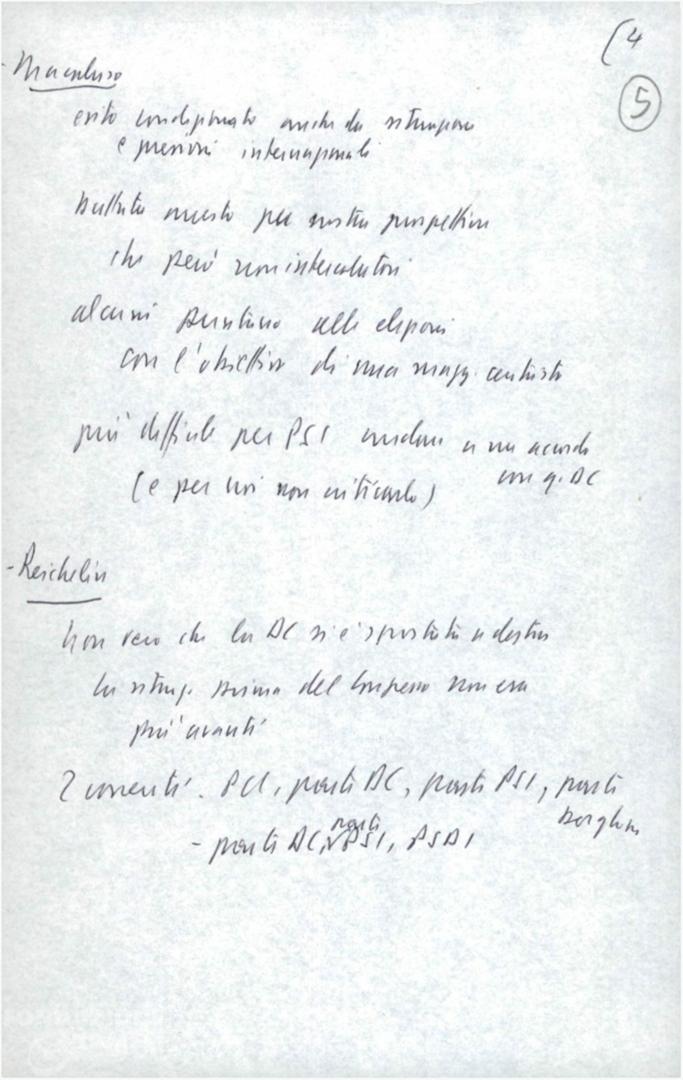 (4
5
- Macaluso
esito condizionato anche da situazione
e pressioni internazionali
battuta arresto per nostra prospettiva
che però non interlocutori
alcuni puntano alle elezioni
con l'obiettivo di una magg. centrista
più difficile per PSI andare a un accordo
con q. DC
(e per noi non criticarlo)
- Reichlin
non vero che la DC si è spostata a destra
la situaz. prima del Congresso non era
più avanti
2 correnti. PCI, parti DC, parti PSI, parti
borghesi
- parti DC, parti PSI, PSDI